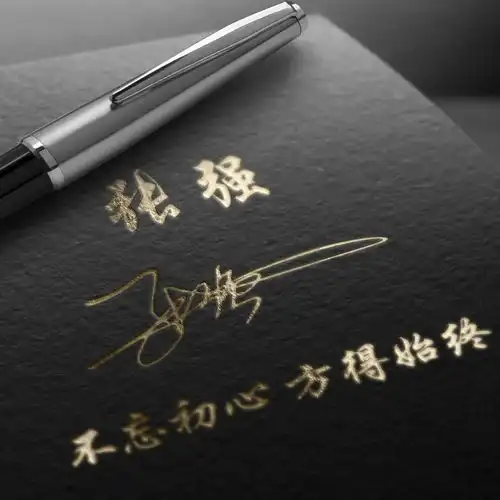 张强
不忘初心 方得始终